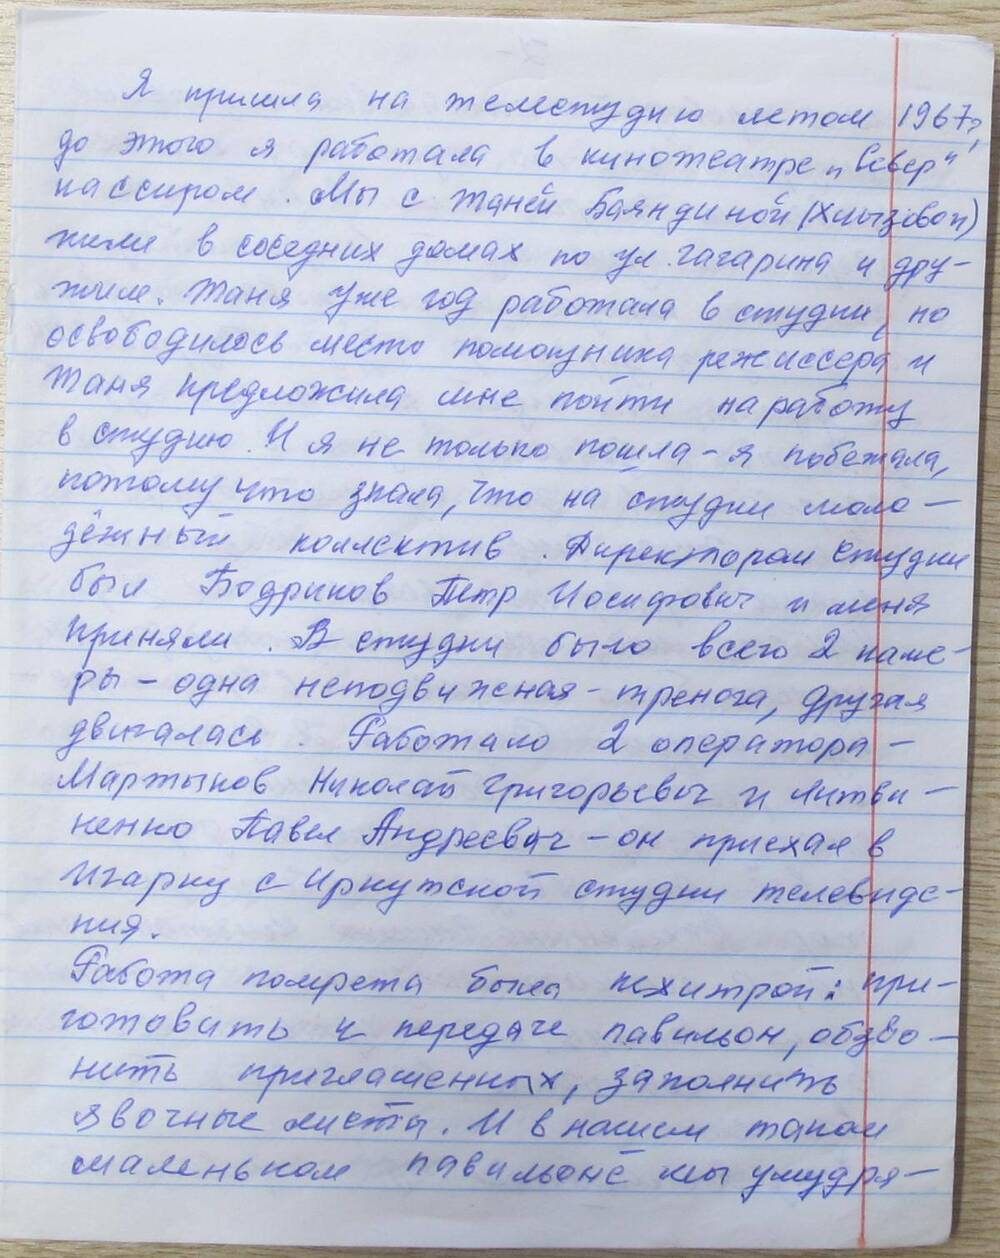 Я пришла на телестудию летом 1967г,
до этого я работала в кинотеатре „Север"
кассиром. Мы с Таней Баяндиной (Хлызовой)
жили в соседних домах по ул. Гагарина и дру-
жили. Таня уже год работала в студии, но
освободилось место помощника режиссера и
Таня предложила мне пойти на работу
в студию. И я не только пошла - я побежала,
потому что знала, что на студии моло-
дёжный коллектив. Директором студии
был Бодриков Пётр Иосифович и меня
приняли. В студии было всего 2 каме-
ры - одна неподвижная - тренога, другая
двигалась. Работало 2 оператора -
Мартынов Николай Григорьевич и Литви-
ненко Павел Андреевич - он приехал в
Игарку с Иркутской студии телевиде-
ния.
Работа помрежа была нехитрой: при-
готовить к передаче павильон, обзво-
нить приглашенных, заполнить
явочные листы. И в нашем таком
маленьком павильоне мы умудря-